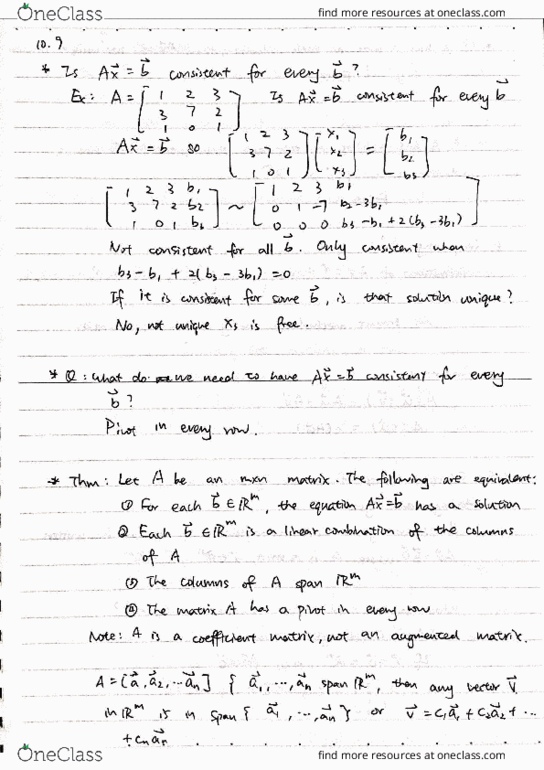 OneClass
find more resources at oneclass.com
10.9
* Is Ax⃗ = b⃗ consistent for every b⃗ ?
Ex: A = [ 1 2 3 Is Ax⃗ = b⃗ consistent for every b⃗
3 7 2
1 0 1 ]
Ax⃗ = b⃗ so [ 1 2 3 ] [ x₁ ] = [ b₁ ]
[ 3 7 2 ] [ x₂ ] [ b₂ ]
[ 1 0 1 ] [ x₃ ] [ b₃ ]
[ 1 2 3 b₁ ] ~ [ 1 2 3 b₁ ]
[ 3 7 2 b₂ ] [ 0 1 -7 b₂-3b₁ ]
[ 1 0 1 b₃ ] [ 0 0 0 b₃-b₁+2(b₃-3b₁) ]
Not consistent for all b⃗. Only consistent when
b₃ - b₁ + 2(b₃ - 3b₁) = 0
If it is consistent for some b⃗, is that solution unique?
No, not unique x₃ is free.
* Q: what do we need to have Ax⃗ = b⃗ consistent for every
b⃗ ?
Pivot in every row.
* Thm: Let A be an mxn matrix. The following are equivalent:
① For each b⃗ ∈ ℝᵐ, the equation Ax⃗ = b⃗ has a solution
② Each b⃗ ∈ ℝᵐ is a linear combination of the columns
of A
③ The columns of A span ℝᵐ
④ The matrix A has a pivot in every row
Note: A is a coefficient matrix, not an augmented matrix.
A = [a⃗, a⃗₂, ... a⃗ₙ] { a⃗₁, ..., a⃗ₙ span ℝᵐ, then any vector v⃗
in ℝᵐ is in span { a⃗₁, ..., a⃗ₙ } or v⃗ = c₁a⃗₁ + c₂a⃗₂ + ...
+ cₙa⃗ₙ
OneClass
find more resources at oneclass.com